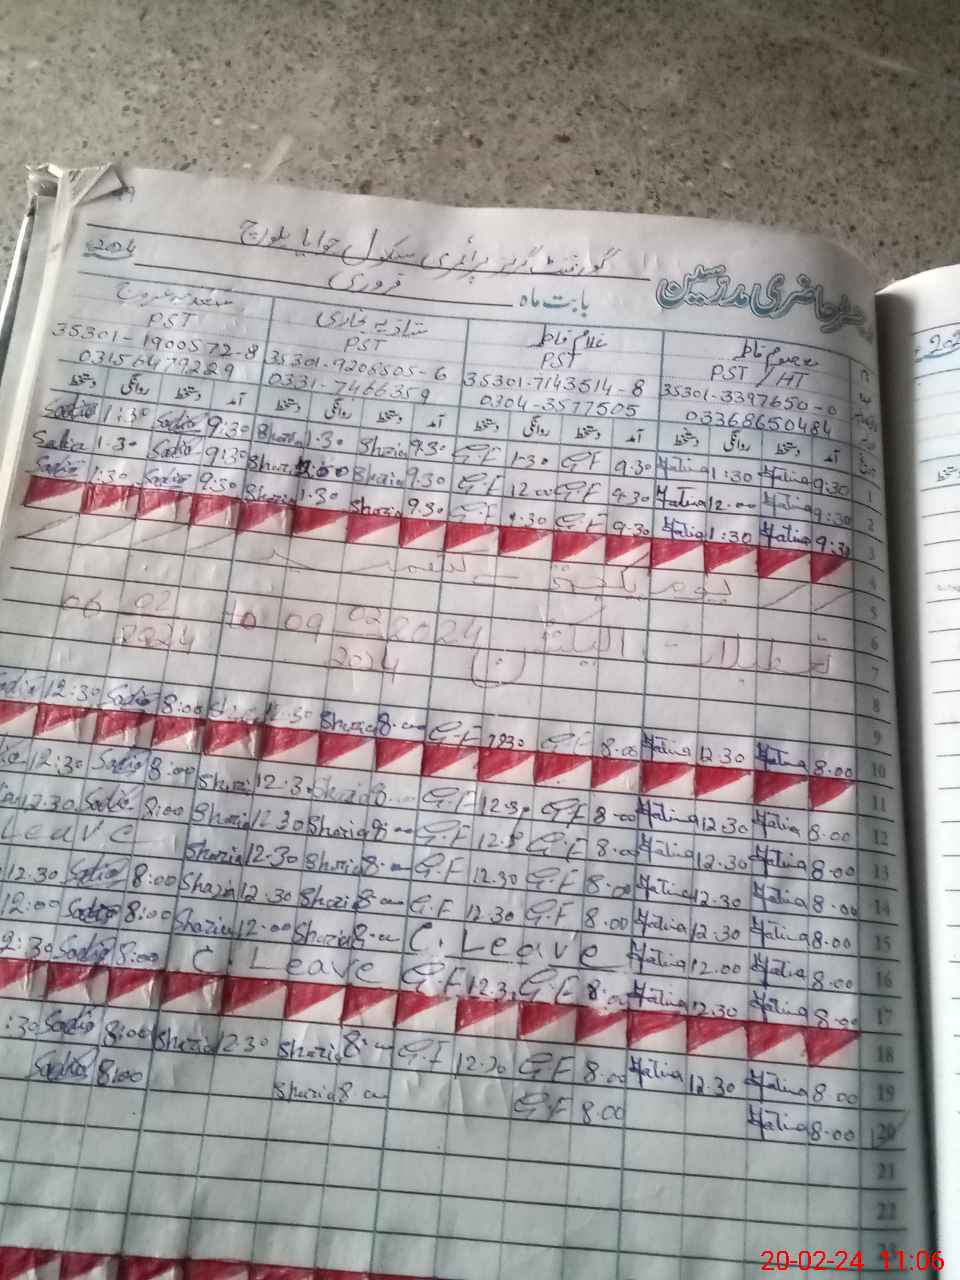 گورنمنٹ گرلز پرائمری سکول
حاضری مدرسین
بابت ماہ فروری 2024
معصوم فاطمہ غلام فاطمہ شازیہ بخاری
PST / HT PST PST PST
35301-3397650-0 35301-7143514-8 35301-9206505-6 35301-1900572-8
03368650484 0304-3577505 0331-7466359 03156479289
آمد دستخط روانگی دستخط آمد دستخط روانگی دستخط آمد دستخط روانگی دستخط آمد دستخط روانگی دستخط
1 9:30 1:30 9:30 G.F 1.30 G.F 9.30 Shazia 1.30 Shazia 9:30 Sadia 1:30 Sadia
2 9:30 12.00 9.30 G.F 12.00 G.F 9.30 Shazia Shazia 9:30 Sadia 1.30 Sadia
3 9:30 1:30 9.30 G.F 1.30 G.F 9.30 Shazia 1.30 Shazia 9.30 Sadia 1:30 Sadia
4
5 یوم یکجہتی کشمیر
6
7 تعطیلات الیکشن 09 02 2024 06 02 2024
8
9
10 8.00 12.30 8.00 G.F G.F 8.00 Shazia 12.30 8:00 Sadia 12:30
11
12 8.00 12.30 8.00 G.F 12.30 G.F Shazia 12.30 Shazia 8:00 Sadia 12:30
13 8.00 12.30 8.00 G.F 12.30 G.F Shazia 12.30 Shazia 8:00 Sadia 12.30
14 8.00 12.30 8.00 G.F 12.30 G.F 8.00 Shazia 12.30 Shazia Leave
15 8.00 12.30 8.00 G.F 12.30 G.F 8.00 Shazia 12.30 Shazia 8:00 Sadia 12.30
16 8.00 12.00 C. Leave 8.00 Shazia 12.00 Shazia 8:00 Sadia 12:00
17 8.00 12.30 8.00 G.F 12.30 G.F C. Leave 8:00 Sadia 2:30
18
19 8.00 12.30 8.00 G.F 12.30 G.F 8.00 Shazia 12.30 Shazia 8:00 Sadia :30
20 8.00 8.00 G.F 8.00 Shazia 8:00 Sadia
21
22
23
20-02-24 11:06